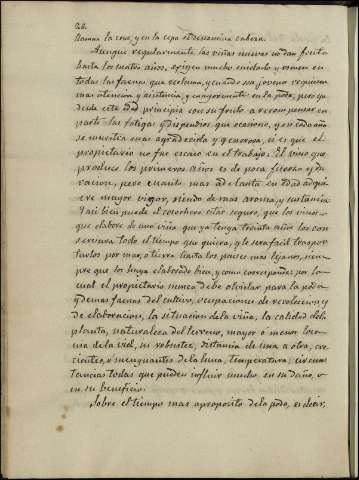 22.
llaman la cruz, y en la cepa se denomina cabeza.
Aunque regularmente las viñas nuevas no dan fruto
hasta los cuatro años, exigen mucho cuidado y esmero en
todas las faenas que reclama, y cuando son jovenes requieren
mas intencion y asistencia, y mayormente en la poda, pero ya
desde esta edad principia con su fruto a recompensar en
parte las fatigas y dispendios que ocasionó, y en cada año
se muestra mas agradecida y generosa, si es que el
propietario no fue escaso en el trabajo. El vino que
produce los primeros años es de poca fuerza y du-
racion, pero cuanto mas adelanta en edad adqui-
ere mayor vigor, siendo de mas aroma, y sustancia
Y asi bien puede el cosechero estar seguro, que los vinos
que elabore de una viña que ya tenga treinta años los con-
servara todo el tiempo que quiera, y le sera facil traspor-
tarlos por mar, o tierra hasta los paises mas lejanos, siem-
pre que los haya elaborado bien, y como corresponde; por lo
cual el propietario nunca debe olvidar para la poda
y demas faenas del cultivo, ocupaciones de recoleccion y
de elaboracion, la situacion de la viña, la calidad de la
planta, naturaleza del terreno, mayor o menor loza-
nia de la vid, su robustez, distancia de una a otra, cre-
cientes, o menguantes de la luna, temperatura, circuns-
tancias todas que pueden influir mucho en su daño, o
en su beneficio.
Sobre el tiempo mas aproposito de la poda, es decir,